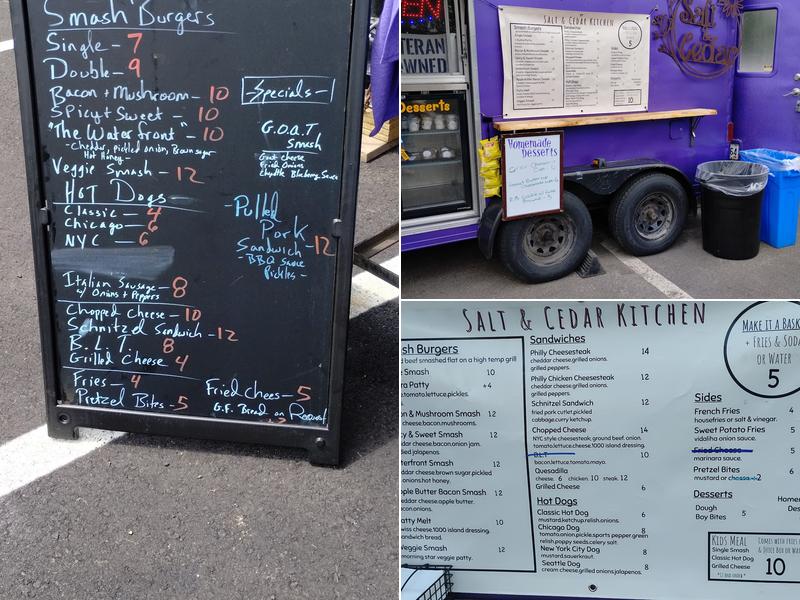 Smash Burgers
Single - 7
Double - 9
Bacon + Mushroom - 10
Spicy + Sweet - 10
"The Waterfront" - 10
- Cheddar, pickled onion, Brown sugar
Hot Honey -
Veggie Smash - 12
HOT Dogs
Classic - 4
Chicago - 6
NYC - 6
Italian Sausage - 8
w/ Onions + Peppers
Chopped Cheese - 10
Schnitzel Sandwich - 12
B.L.T. 8
Grilled Cheese 4
Fries - 4
Pretzel Bites - 5
-Specials-
G.O.A.T.
Smash
Goat cheese
Fried Onions
Chipotle Blueberry Sauce
-Pulled
Pork
Sandwich - 12
- BBQ Sauce
Pickles -
Fried Chees - 5
G.F. Bread on Request
Salt & Cedar Kitchen
TERAN
WNED
Desserts
Salt
&
Cedar
Homemade
Desserts
Salt & Cedar Kitchen
sh Burgers
d beef smashed flat on a high temp grill
e Smash 10
ra Patty +4
,tomato,lettuce,pickles.
on & Mushroom Smash 12
cheese,bacon,mushrooms.
cy & Sweet Smash 12
cheese,bacon,onion jam.
ed jalapenos.
terfront Smash 12
cheddar cheese,brown sugar,pickled
onions,hot honey.
pple Butter Bacon Smash 12
cheddar cheese,apple butter.
acon,onions.
atty Melt 10
wiss cheese,1000 island dressing.
andwich bread.
Veggie Smash 12
morning star veggie patty.
Sandwiches
Philly Cheesesteak 14
cheddar cheese,grilled onions.
grilled peppers.
Philly Chicken Cheesesteak 12
cheddar cheese,grilled onions.
grilled peppers.
Schnitzel Sandwich 12
fried pork cutlet,pickled
cabbage,curry ketchup.
Chopped Cheese 14
NYC style cheesesteak, ground beef. onion.
tomato,lettuce,cheese,1000 island dressing.
B.L.T 10
bacon,lettuce,tomato,mayo.
Quesadilla
cheese. 6 chicken. 10 steak. 12
Grilled Cheese 6
Hot Dogs
Classic Hot Dog 6
mustard,ketchup,relish,onions.
Chicago Dog 8
tomato,onion,pickle,sports pepper,green
relish,poppy seeds,celery salt.
New York City Dog 8
mustard,sauerkraut.
Seattle Dog 8
cream cheese,grilled onions,jalapenos.
Make it a Bask
+ Fries & Soda
or Water
5
Sides
French Fries 4
housefries or salt & vinegar.
Sweet Potato Fries 5
vidalia onion sauce.
Fried Cheese 5
marinara sauce.
Pretzel Bites 6
mustard or cheese +2
Desserts
Dough
Boy Bites 5
Home
Des
Kids Meal
Single Smash
Classic Hot Dog
Grilled Cheese
Comes with Fries
& Juice Box or Wat
10